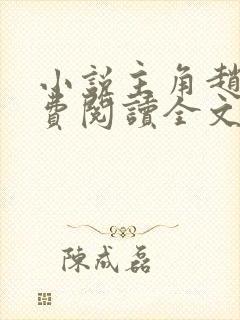 小說主角趙
費閱讀全文
陳成磊